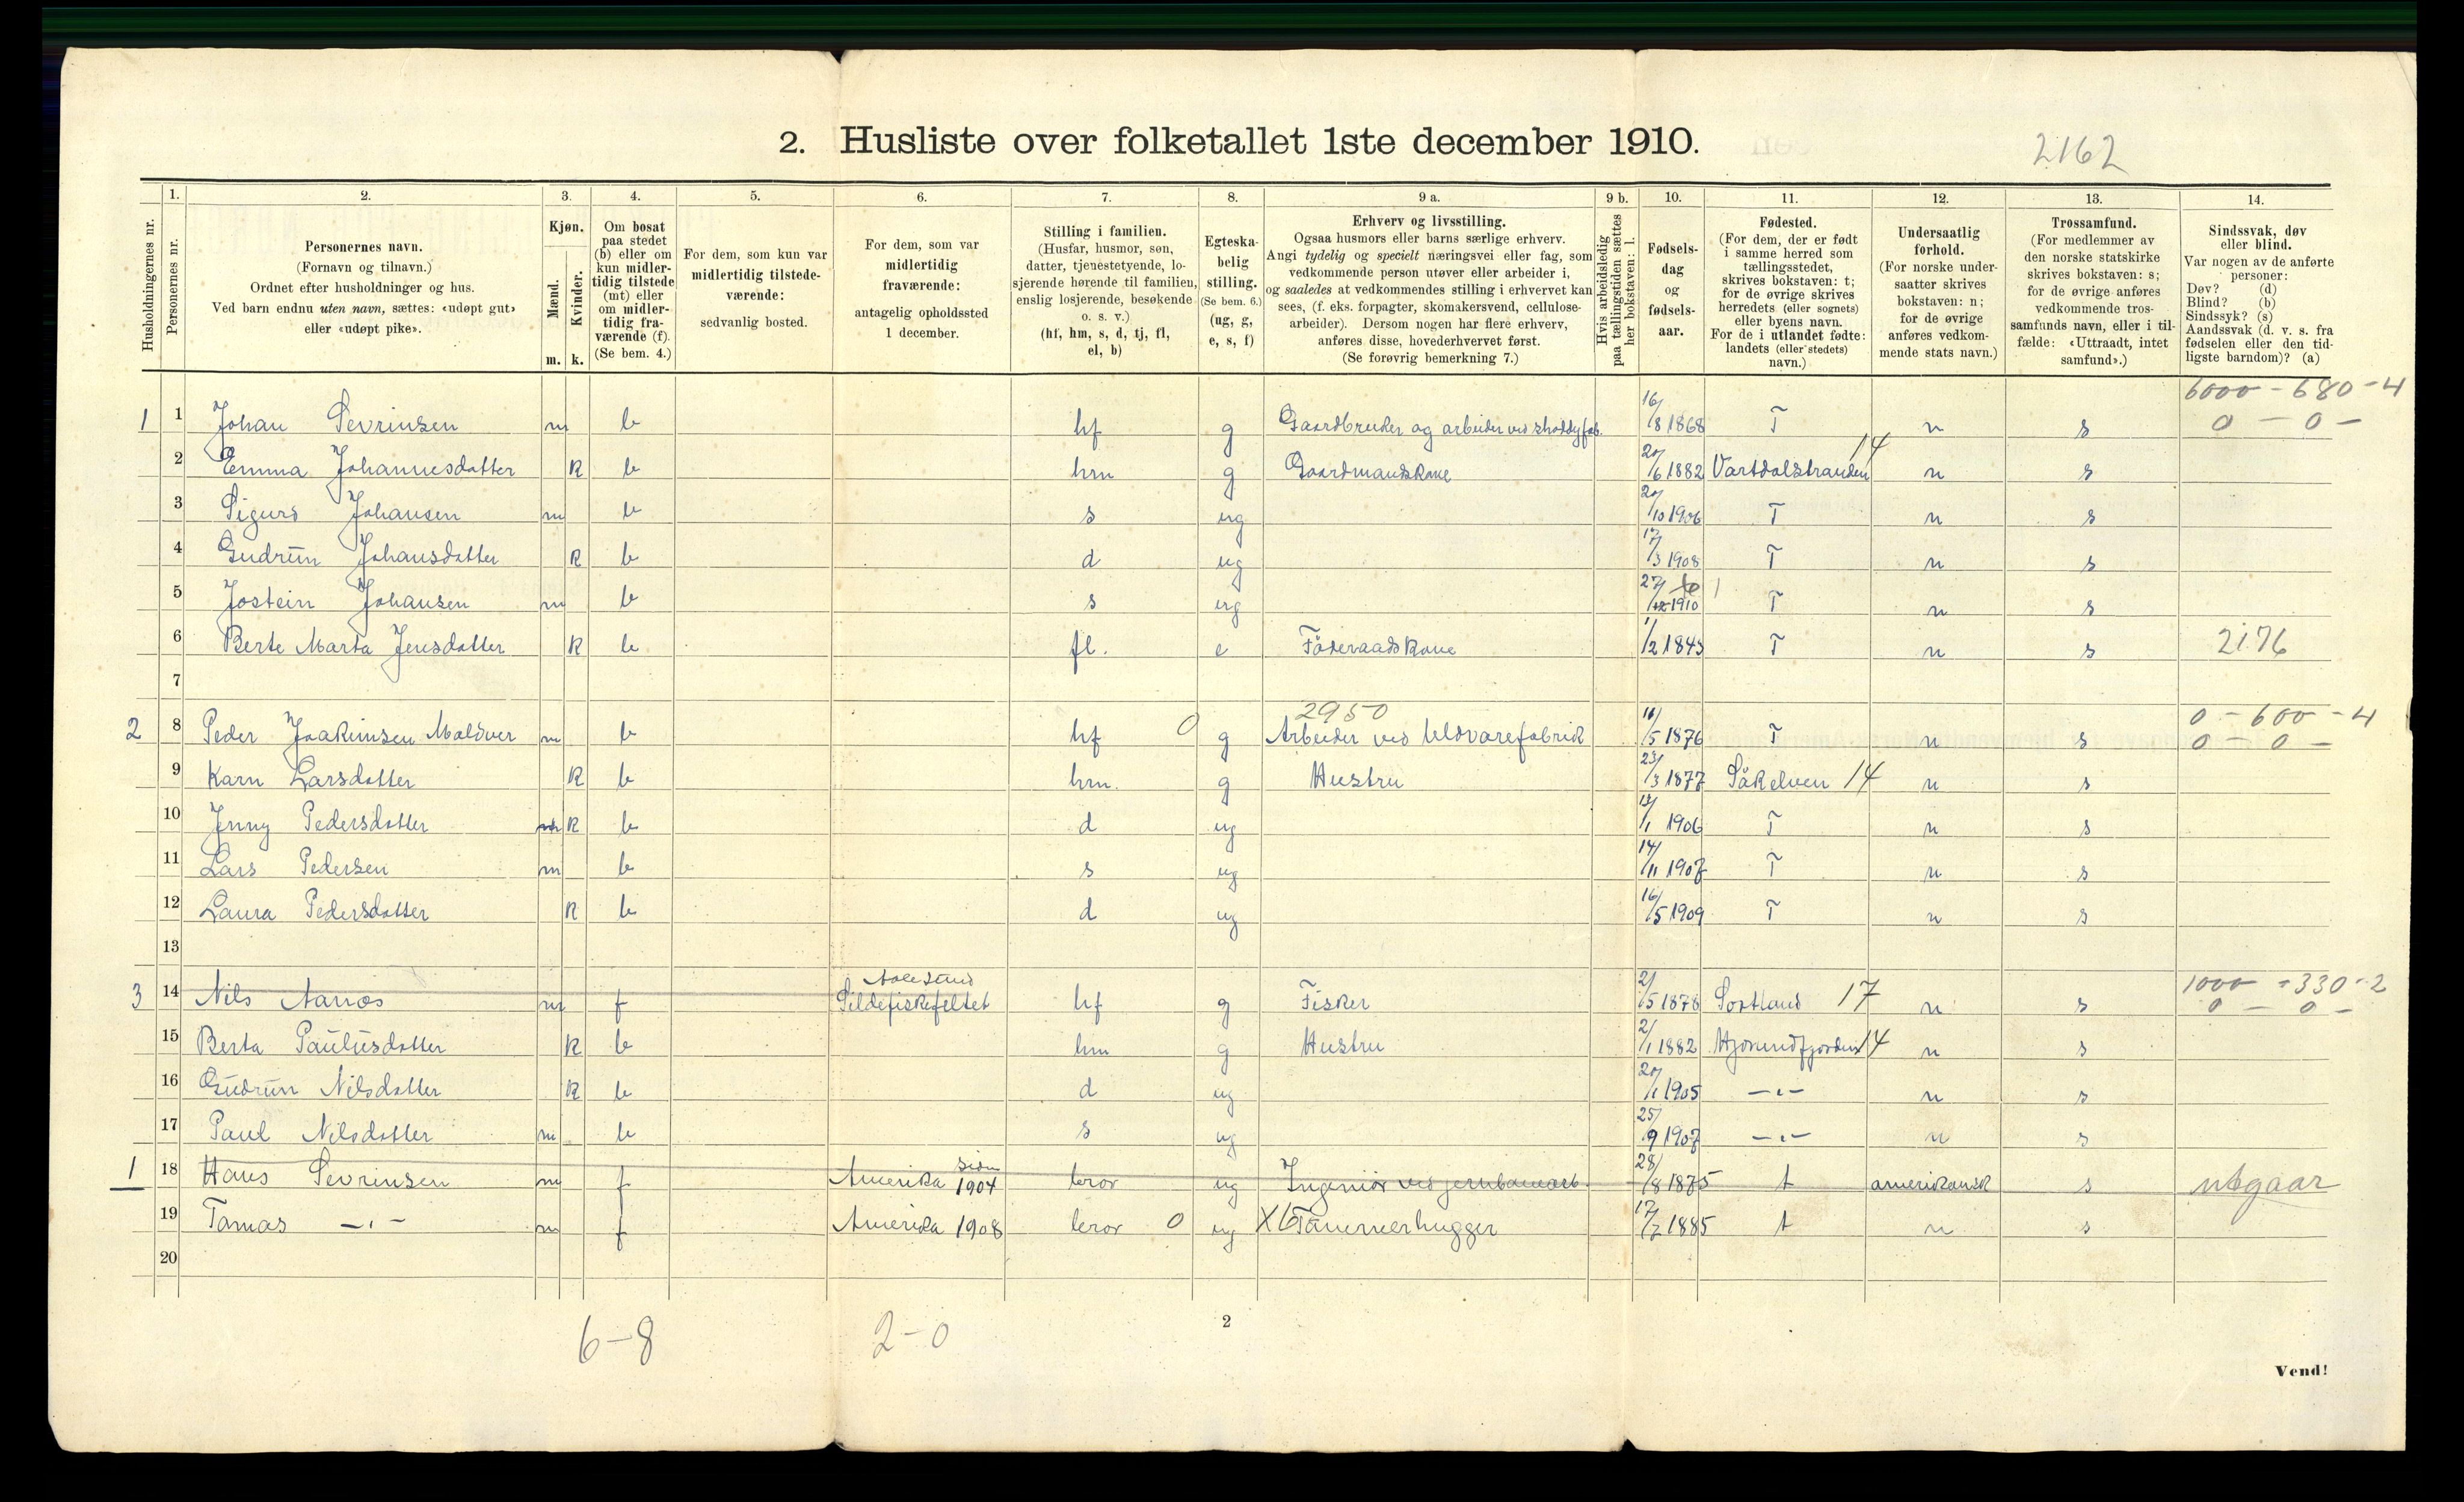 2. Husliste over folketallet 1ste december 1910.
2162
1. 2. 3. 4. 5. 6. 7. 8. 9 a. 9 b. 10. 11. 12. 13. 14.
Husholdningernes nr.
Personernes nr.
Personernes navn.
(Fornavn og tilnavn.)
Ordnet efter husholdninger og hus.
Ved barn endnu uten navn, sættes: «udøpt gut»
eller «udøpt pike».
Kjøn.
Mænd.
Kvinder.
m. k.
Om bosat
paa stedet
(b) eller om
kun midler-
tidig tilstede
(mt) eller
om midler-
tidig fra-
værende (f).
(Se bem. 4.)
For dem, som kun var
midlertidig tilstede-
værende:
sedvanlig bosted.
For dem, som var
midlertidig
fraværende:
antagelig opholdssted
1 december.
Stilling i familien.
(Husfar, husmor, søn,
datter, tjenestetyende, lo-
sjerende hørende til familien,
enslig losjerende, besøkende
o. s. v.)
(hf, hm, s, d, tj, fl,
el, b)
Egteska-
belig
stilling.
(Se bem. 6.)
(ug, g,
e, s, f)
Erhverv og livsstilling.
Ogsaa husmors eller barns særlige erhverv.
Angi tydelig og specielt næringsvei eller fag, som
vedkommende person utøver eller arbeider i,
og saaledes at vedkommendes stilling i erhvervet kan
sees, (f. eks. forpagter, skomakersvend, cellulose-
arbeider). Dersom nogen har flere erhverv,
anføres disse, hovederhvervet først.
(Se forøvrig bemerkning 7.)
Hvis arbeidsledig
paa tællingstiden sættes
her bokstaven: l.
Fødsels-
dag
og
fødsels-
aar.
Fødested.
(For dem, der er født
i samme herred som
tællingsstedet,
skrives bokstaven: t;
for de øvrige skrives
herredets (eller sognets)
eller byens navn.
For de i utlandet fødte:
landets (eller stedets)
navn.)
Undersaatlig
forhold.
(For norske under-
saatter skrives
bokstaven: n;
for de øvrige
anføres vedkom-
mende stats navn.)
Trossamfund.
(For medlemmer av
den norske statskirke
skrives bokstaven: s;
for de øvrige anføres
vedkommende tros-
samfunds navn, eller i til-
fælde: «Uttraadt, intet
samfund».)
Sindssvak, døv
eller blind.
Var nogen av de anførte
personer:
Døv? (d)
Blind? (b)
Sindssyk? (s)
Aandssvak (d. v. s. fra
fødselen eller den tid-
ligste barndom)? (a)
6000 - 680 - 4
1 1 Johan Sevrinsen m b hf g Gaardbruker og arbeider ved shoddyfab. 16/8 1868 T n s 0 - 0 -
2 Emma Johannesdatter k b hm g Gaardmandskone 20/6 1882 Vartdalstranden 14 n s
3 Sigurd Johansen m b s ug 20/10 1906 T n s
4 Gudrun Johansdatter k b d ug 17/3 1908 T n s
5 Jostein Johansen m b s ug 27/ 1910 T n s
6 Berte Marta Jensdatter k b fl. e Føderaadskone 1/2 1843 T n s 2176
7
2950 0 - 600 - 4
2 8 Peder Joakimsen Maldver m b hf 0 g Arbeider ved uldvarefabrik 11/5 1876 T n s 0 - 0 -
9 Karn Larsdatter k b hm. g Hustru 23/3 1877 Søkelven 14 n s
10 Jenny Pedersdatter k b d ug 13/1 1906 T n s
11 Lars Pedersen m b s ug 14/11 1907 T n s
12 Laura Pedersdatter k b d ug 16/5 1909 T n s
13
Aalesund 1000 - 330 - 2
3 14 Nils Aanæs m f Sildefiskefeltet hf g Fisker 2/5 1878 Sortland 17 n s 0 - 0 -
15 Berta Paulusdatter k b hm g Hustru 2/1 1882 Hjørundfjorden 14 n s
16 Gudrun Nilsdatter k b d ug 20/11 1905 -"- n s
17 Paul Nilsdatter m b s ug 25/9 1907 -"- n s
1 18 Hans Sevrinsen m f Amerika siden 1904 bror ug Ingeniør ved jernbanearb. 28/8 1875 t amerikansk s utgaar
19 Tomas -"- m f Amerika 1908 bror 0 ug X6 Tømmerhugger 17/7 1885 t n s
20
6-8 2-0
2
Vend!